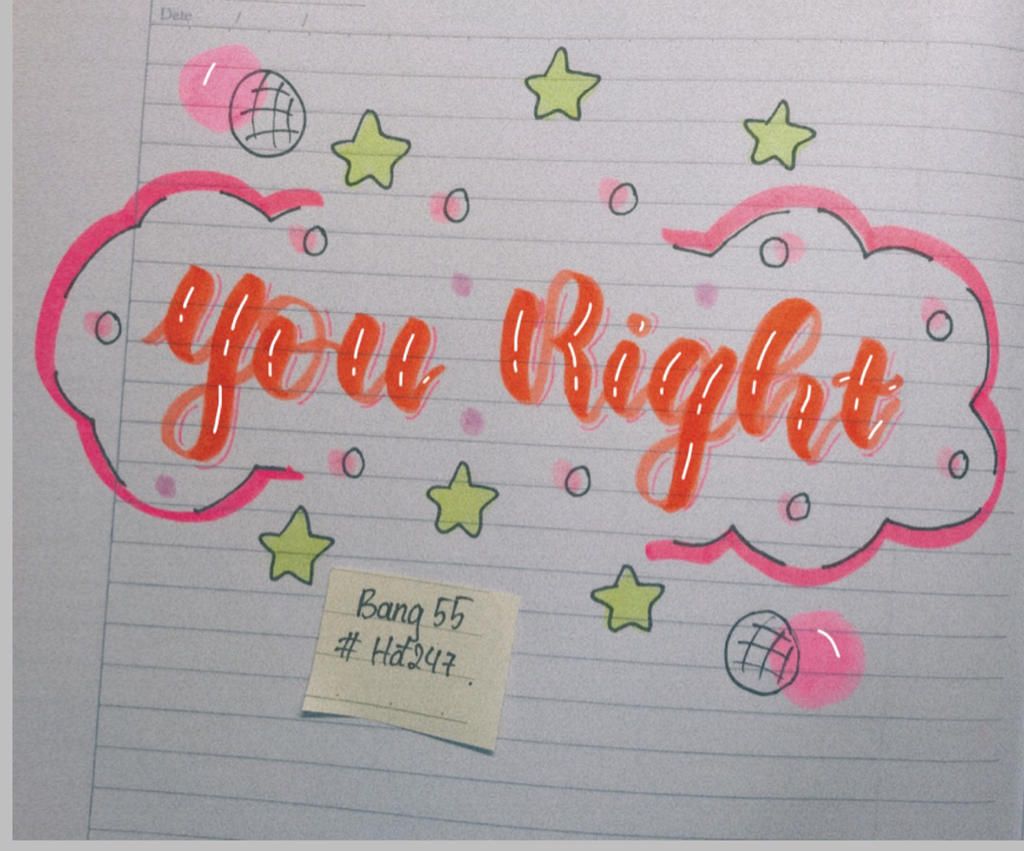 Date / /
you Right
Bang 55
# Hđ247.